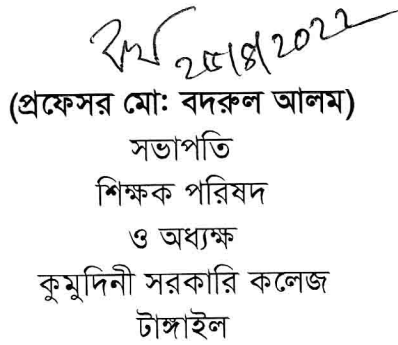 25/8/2022
(প্রফেসর মো: বদরুল আলম)
সভাপতি
শিক্ষক পরিষদ
ও অধ্যক্ষ
কুমুদিনী সরকারি কলেজ
টাঙ্গাইল